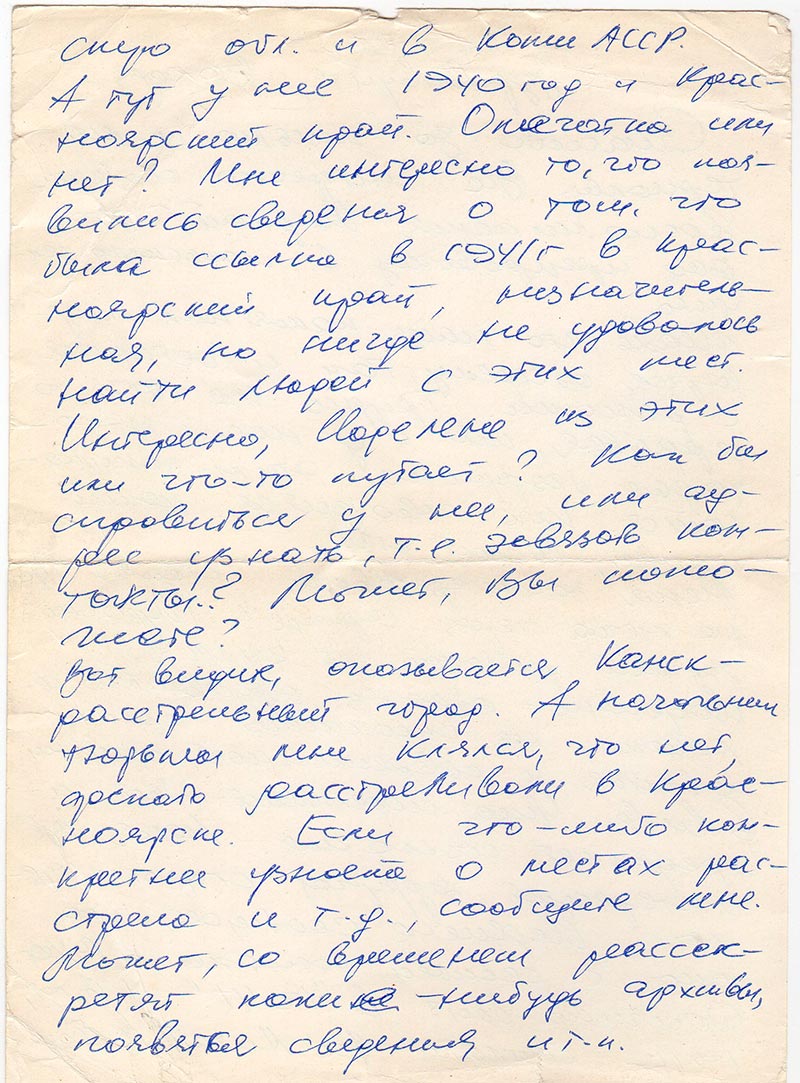 скую обл. и в Коми АССР.
А тут у нее 1940 год и Крас-
ноярский край. Опечатка или
нет? Мне интересно то, что поя-
вились сведения о том, что
была ссылка в 1941г в Крас-
ноярский край, незначитель-
ная, но нигде не удавалось
найти людей с этих мест.
Интересно, из этих
или что-то путает? Как бы
справиться у нее, или ад-
рес узнать, т.е. завязать кон-
такты? Может, Вы помо-
жете?
Вот видите, оказывается Канск-
расстрельный город. А начальник
тюрьмы мне клялся, что нет,
дескать расстреливали в Крас-
ноярске. Если что-либо кон-
кретнее узнаете о местах рас-
стрела и т.д., сообщите мне.
Может, со временем рассек-
ретят какие-нибудь архивы,
появятся сведения и т.п.